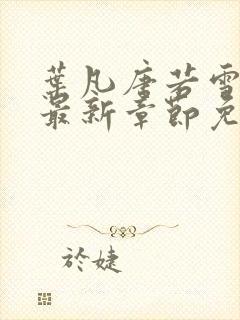 葉凡唐若雪
最新章節免
於婕